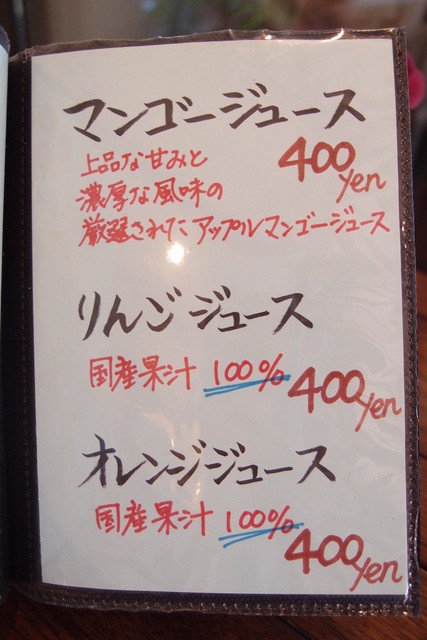 マンゴージュース
上品な甘みと
400yen
濃厚な風味の
厳選されたアップルマンゴージュース
りんごジュース
国産果汁 100%
400yen
オレンジジュース
国産果汁 100%
400yen